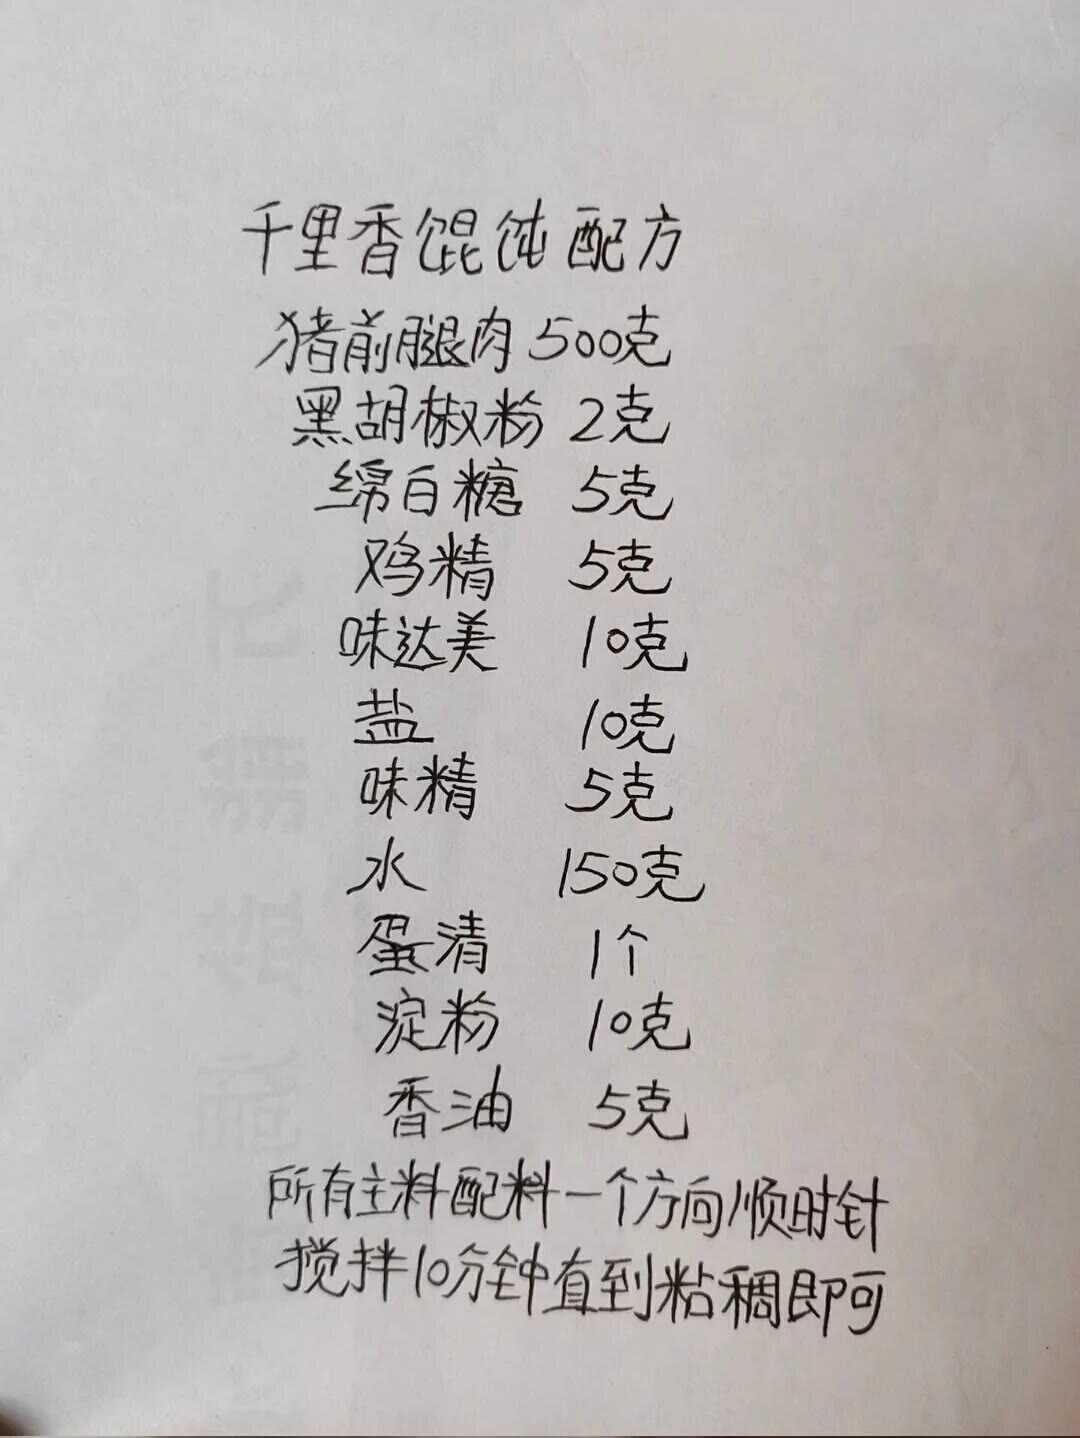 千里香馄饨配方
猪前腿肉 500克
黑胡椒粉 2克
绵白糖 5克
鸡精 5克
味达美 10克
盐 10克
味精 5克
水 150克
蛋清 1个
淀粉 10克
香油 5克
所有主料配料一个方向顺时针
搅拌10分钟直到粘稠即可